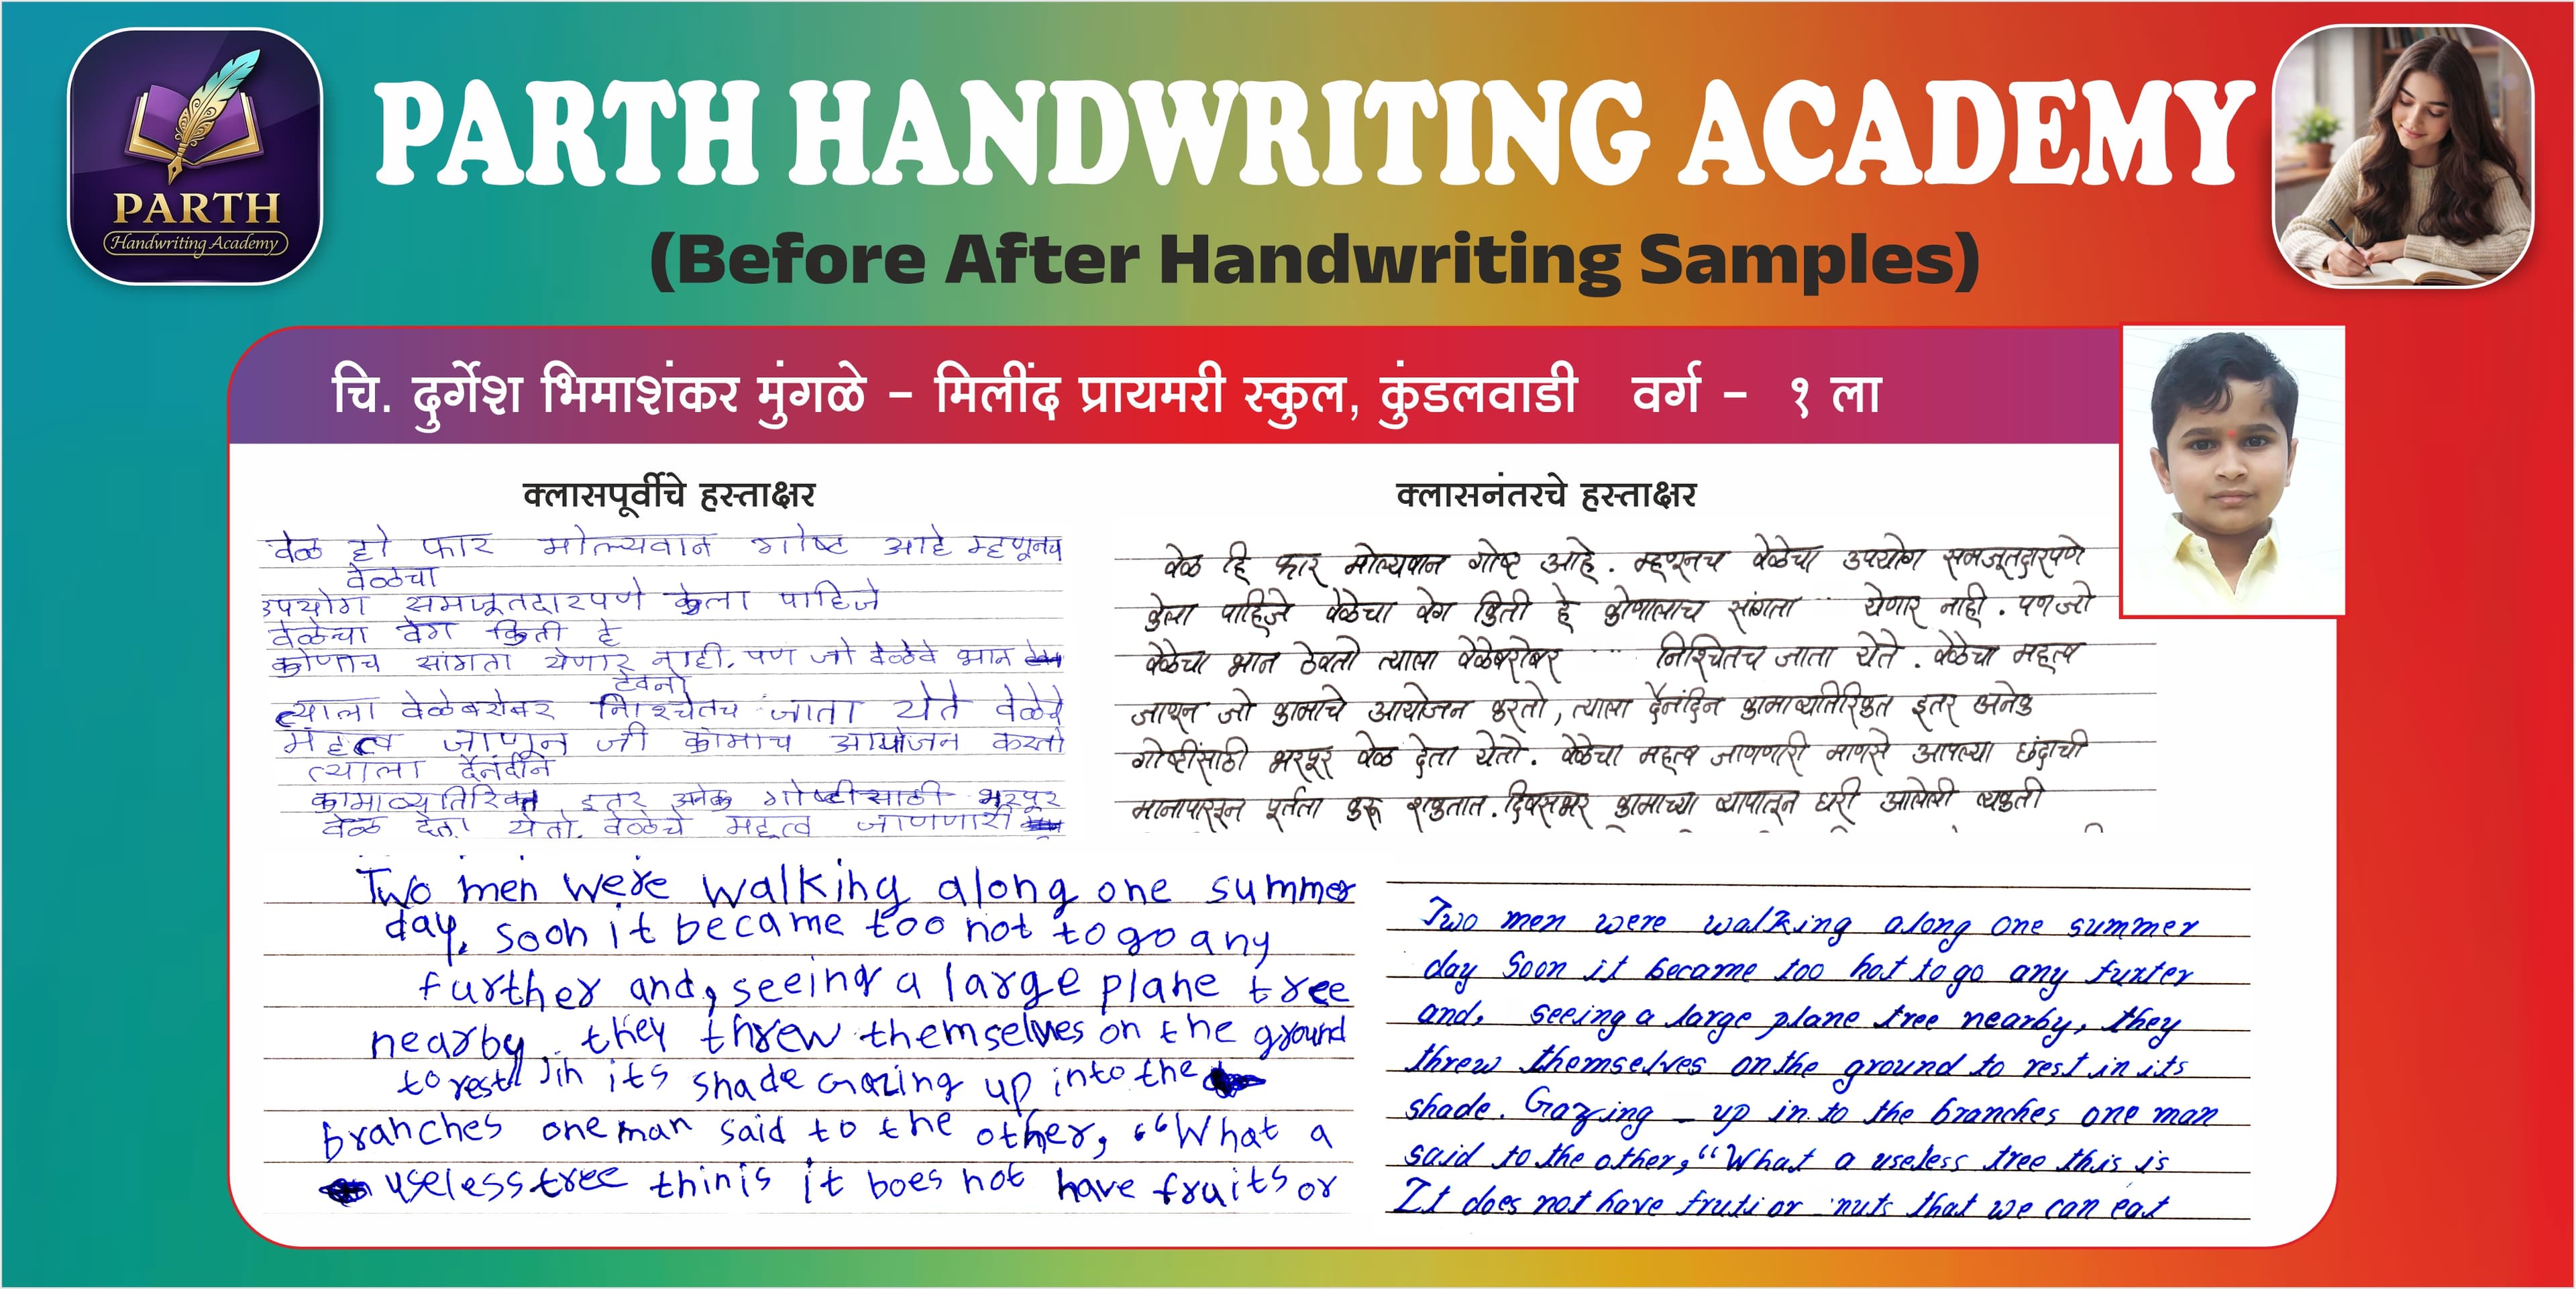 PARTH
Handwriting Academy
PARTH HANDWRITING ACADEMY
(Before After Handwriting Samples)
चि. दुर्गेश भिमाशंकर मुंगळे - मिलींद प्रायमरी स्कुल, कुंडलवाडी वर्ग - १ ला
क्लासपूर्वीचे हस्ताक्षर
वेळ ही फार मोल्यवान गोष्ट आहे म्हणूनच
वेळेचा
उपयोग समजूतदारपणे केला पाहिजे
वेळेचा वेग किती हे
कोणाच सांगता येणार नाही. पण जो वेळेचे भान
ठेवनो
त्याला वेळेबरोबर निश्चितच जाता येते वेळेचे
महत्व जाणून जी कामाच आयोजन करतो
त्याला दैनंदीन
कामाव्यतिरिक्त इतर अनेक गोष्टीसाठी भरपूर
वेळ देता येतो. वेळेचे महत्व जाणणारी
क्लासनंतरचे हस्ताक्षर
वेळ हि फार मोल्यवान गोष्ट आहे. म्हणूनच वेळेचा उपयोग समजूतदारपणे
केला पाहिजे वेळेचा वेग किती हे कोणालाच सांगता येणार नाही. पण जो
वेळेचा भान ठेवतो त्याला वेळेबरोबर निश्चितच जाता येते. वेळेचा महत्व
जाणून जो कामाचे आयोजन करतो, त्याला दैनंदिन कामाव्यतिरिक्त इतर अनेक
गोष्टींसाठी भरपूर वेळ देता येतो. वेळेचा महत्व जाणणारी माणसे आपल्या छंदाची
मानापासून पूर्तता करू शकतात. दिवसभर कामाच्या व्यापातून घरी आलेली व्यक्ती
Two men were walking along one summer
day, soon it became too not to go any
further and, seeing a large plane tree
nearby, they threw themselves on the ground
to rest in its shade Gazing up into the
branches one man said to the other, "What a
useless tree thinis it boes not have fruits or
Two men were walking along one summer
day Soon it became too hot to go any furter
and, seeing a large plane tree nearby, they
threw themselves on the ground to rest in its
shade. Gazing - up in to the branches one man
said to the other, "What a useless tree this is
It does not have fruti or nuts that we can eat